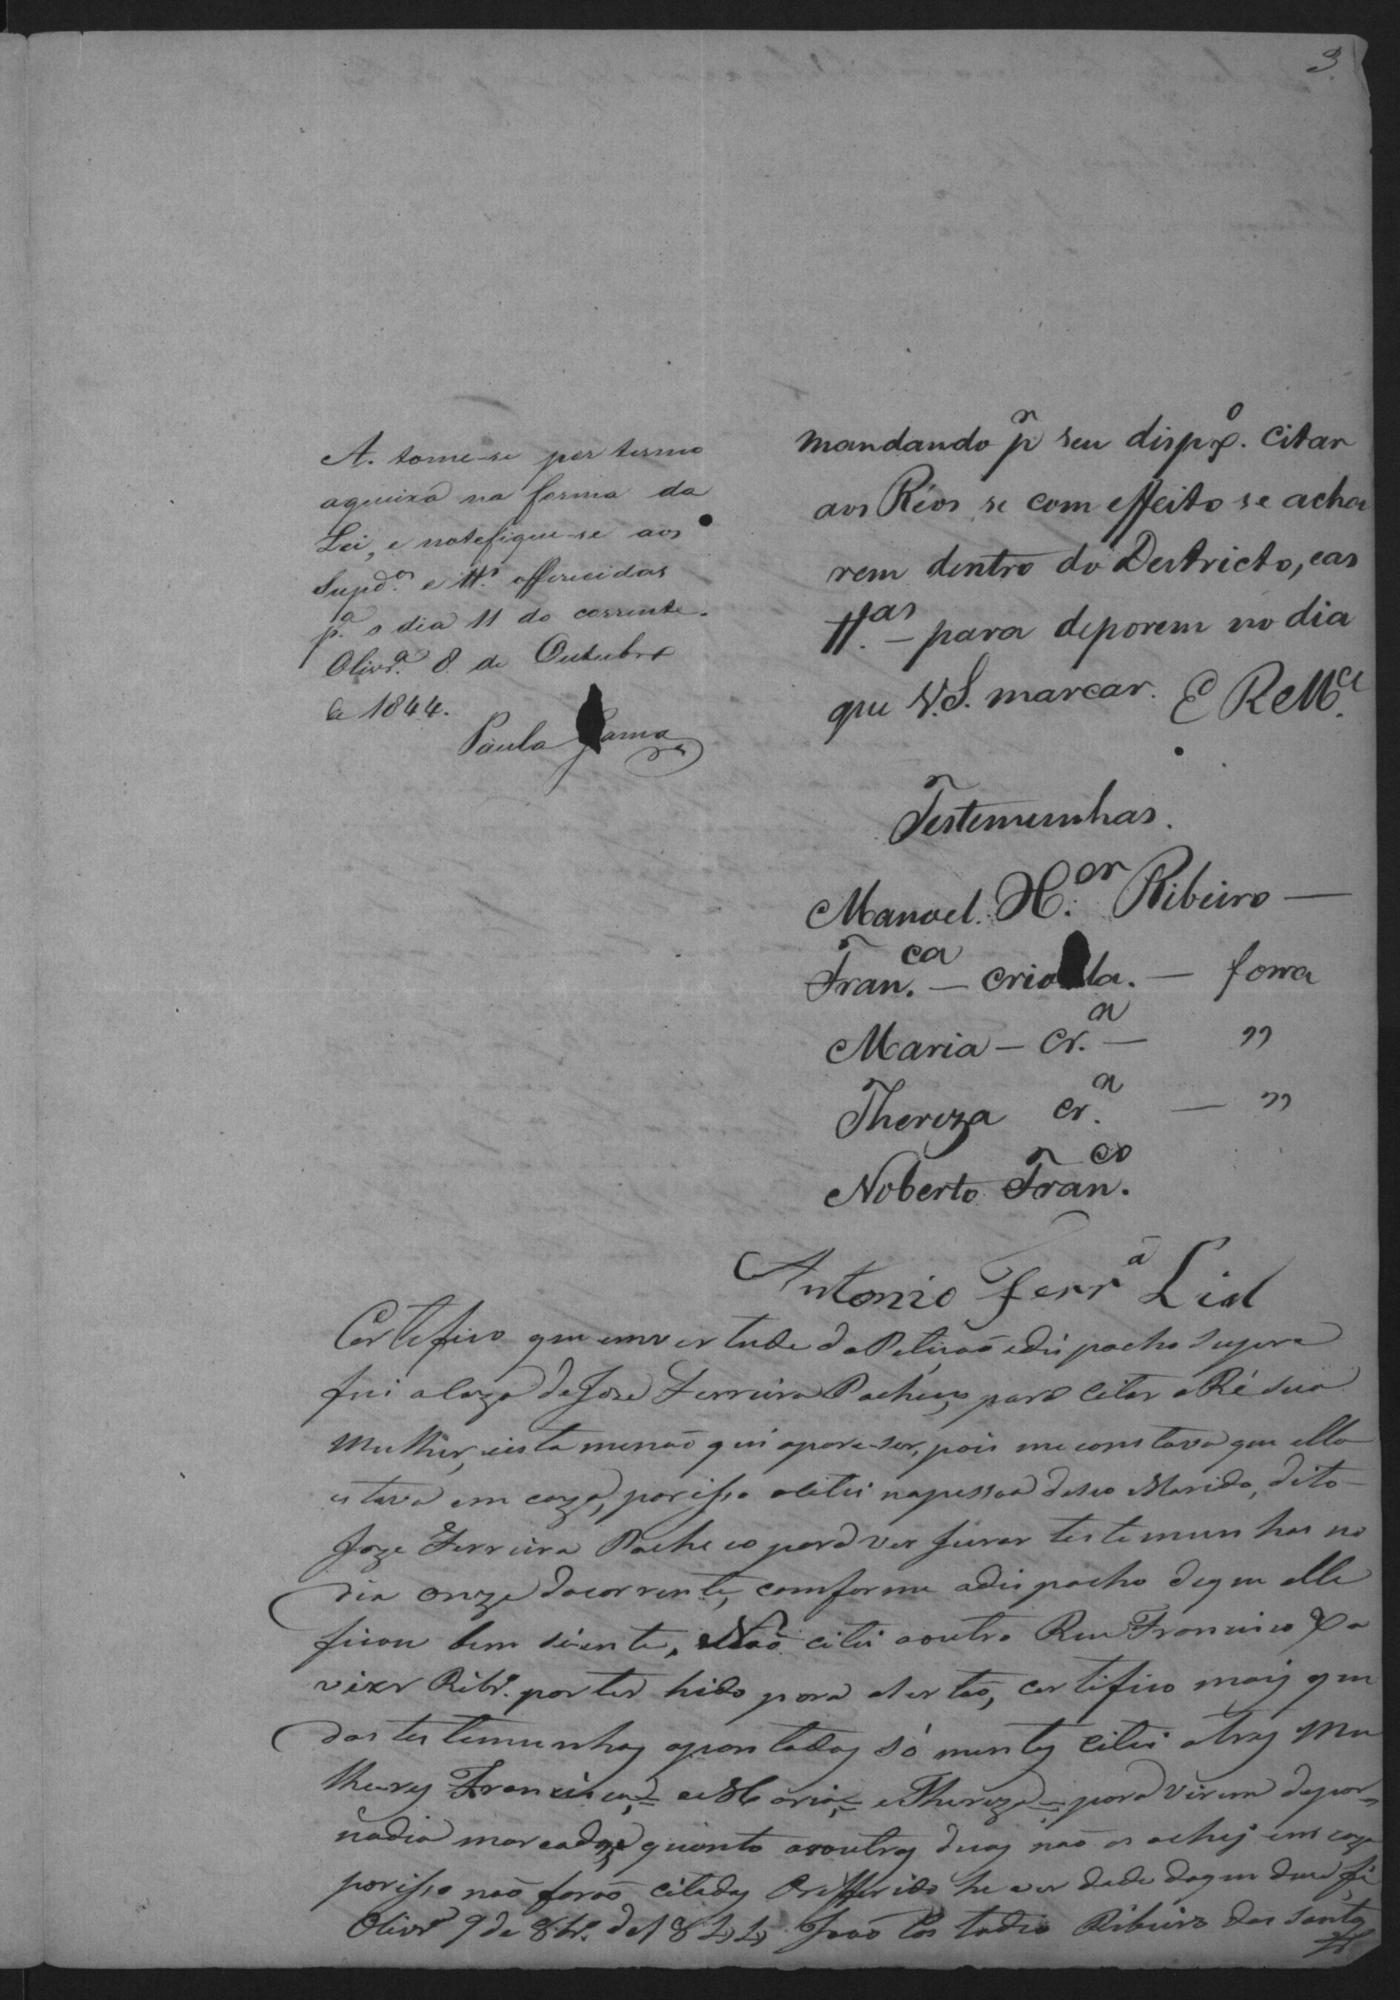 3
A. tome-se por termo
aqueixa na forma da
Lei, e notefique-se aos
Supd.os e tt.as offerecidas
p.a o dia 11 do corrente.
Olivr.a 8 de Outubro
de 1844.
Paula Gama
mandando p.r seu disp.o citar
aos Réos se com effeito se acha
rem dentro do Destricto, eas
tt.as – para deporem no dia
que V.S. marcar. E R e M.ce
Testemunhas.
Manoel. H.or Ribeiro —
Fran.ca — crioula. — forra
Maria — cr.a — "
Thereza cr.a — "
Noberto Fran.co
Antonio Ferr.a Lial
Certefico que emvertude da Petição edispacho supera
fui a Caza de Joze Ferreira Pacheco, para Citar a Ré sua
Mulher, eesta menão quis apareser, pois me constava que ella
estava em caza, porisso acitei napessoa deseo Marido, dito
Joze Ferreira Pacheco para ver jurar testemunhas no
dia onze docorrente, comforme adispacho dequ elle
ficou bem siente, Não citei aoutro Reu Francisco Xa
vier Ribr.o por ter hido para osertão, certifico mais que
das testemunhas apontadas só mente citei atres Mu
lheres Francisca, e Maria, e Thereza, para virem depor
nadia marcado, equanto asoutras duas não as achei em caza
porisso não forão citadas Orefferido he verdade doque dou fé
Olivr.a 9 de 8br.o de 1844 João Custodio Ribeiro dos Santos